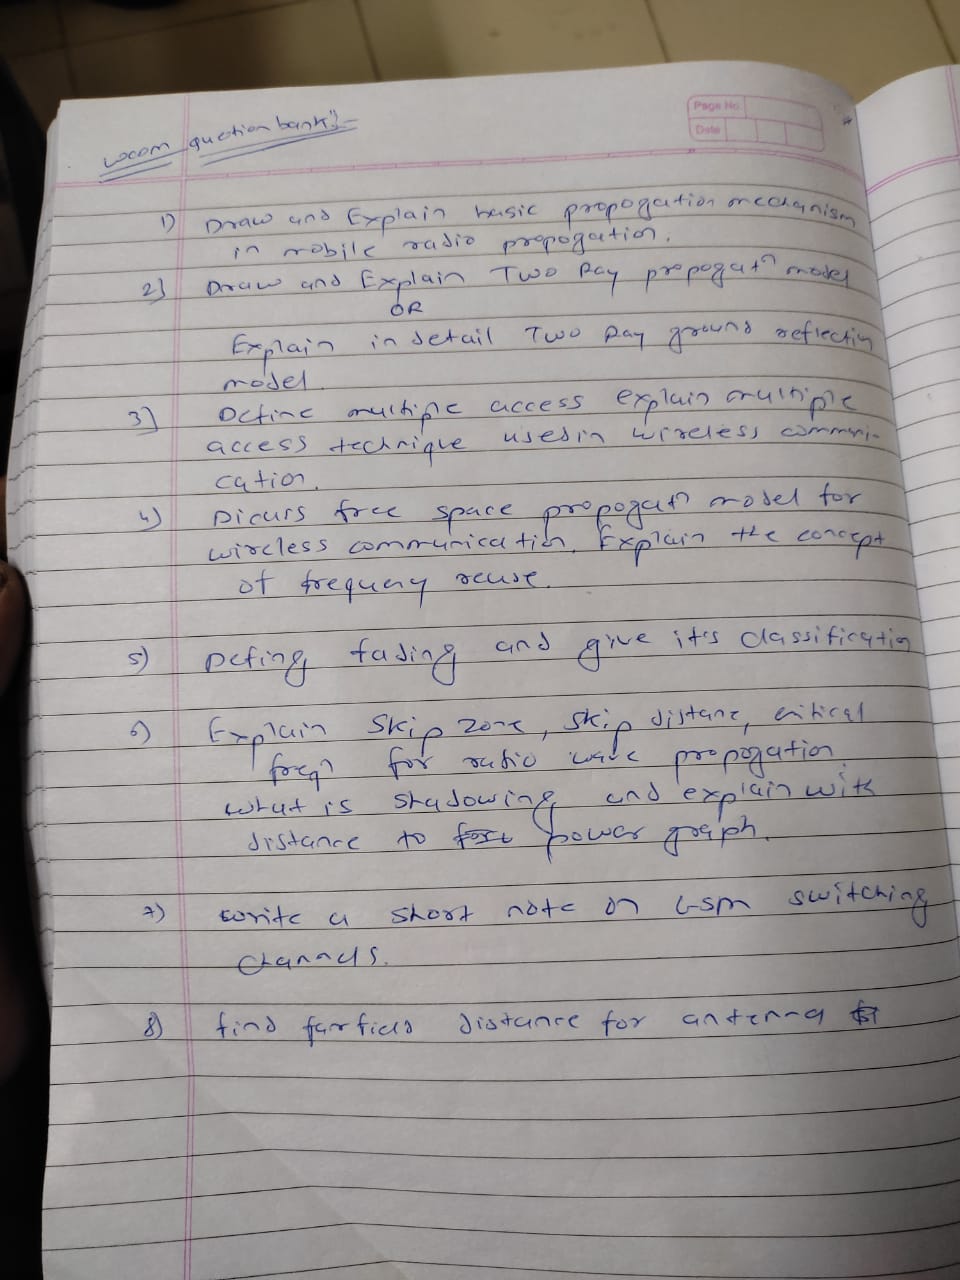 Page No.
Date
wcom quetion bank :-
1) Draw and Explain basic propogation mechanism
in mobile radio propogation.
2) Draw and Explain Two Ray propogatn model
OR
Explain in detail Two Ray ground reflection
model.
3) Define multiple access explain multiple
access technique used in wireless communi-
cation.
4) Dicurs free space propogatn model for
wireless communication. Explain the concept
of frequency reuse.
5) Define fading and give it's classification
6) Explain Skip zone, skip distanc, critical
freqn for ratio wave propogation.
what is shadowing and explain with
distance to power graph.
7) write a short note on GSM switching
channels.
8) find farfield distance for antenna